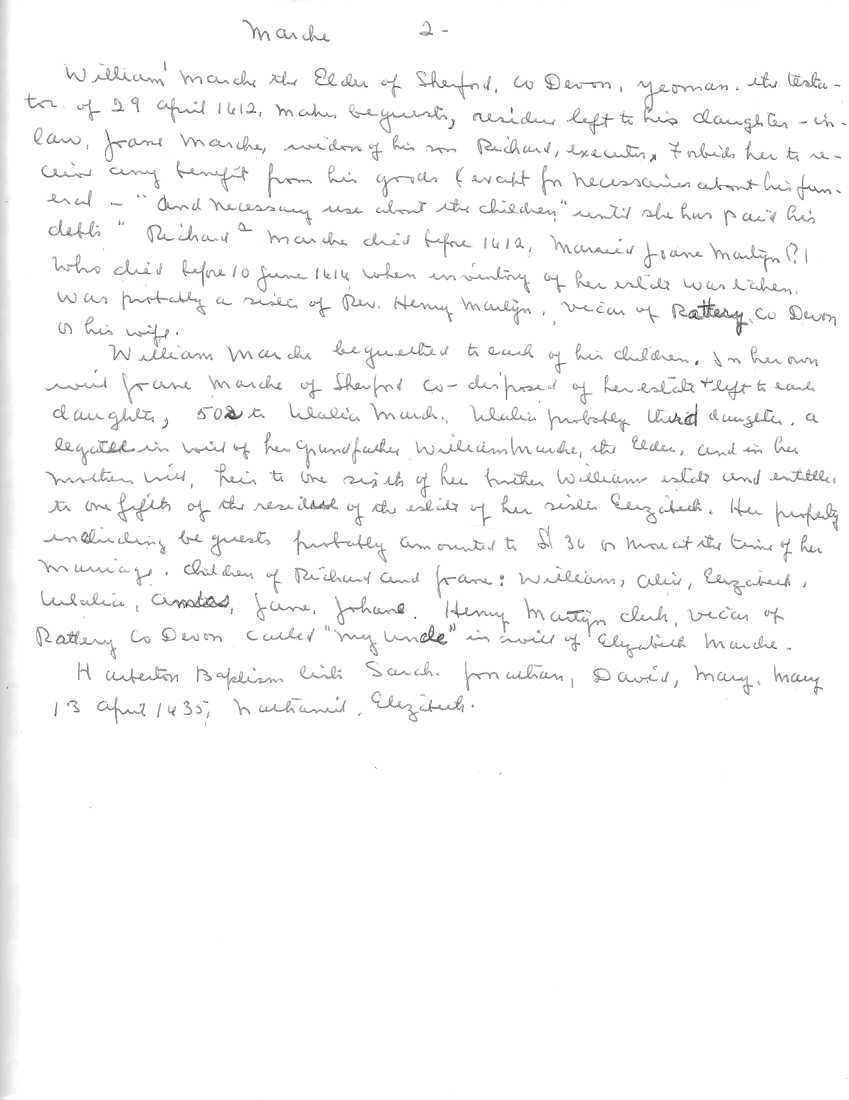 Marche 2-
William¹ Marche the Elder of Sherford, Co Devon, yeoman. the testa-
tor of 29 April 1612, makes bequests, residue left to his daughter-in-
law, Joane Marche, widow of his son Richard, executrix, Forbids her to re-
ceive any benefit from his goods (except for necessaries about his fun-
eral - "and necessary use about the children," until she has paid his
debts" Richard² Marche died before 1612, Married Joane Martyn (?)
who died before 10 June 1614, when inventory of her estate was taken.
Was probably a sister of Rev. Henry Martyn, vicar of Rattery, Co Devon
or his wife.
William Marche bequeathed to each of his children. In her own
will Joane Marche of Sherford Co- disposed of her estate + left to each
daughter, to Ulalia March. Ulalia probably third daughter, a
legatee in will of her Grandfather William Marche, the Elder, and in her
mother will, heir to one sixth of her brother Williams estate and entitled
to one fifth of the residue of the estate of her sister Elizabeth. Her property
including bequests probably amounted to 36 or more at the time of her
marriage. Children of Richard and Joane: William, Alis, Elizabeth,
Ulalia, Jane, Johane. Henry Martyn clerk, vicar of
Rattery Co Devon called "my uncle" in will of Elizabeth Marche.
Harberton Baptism lists Sarah. Jonathan, David, Mary, Mary
13 April 1635, Nathaniel, Elizabeth.